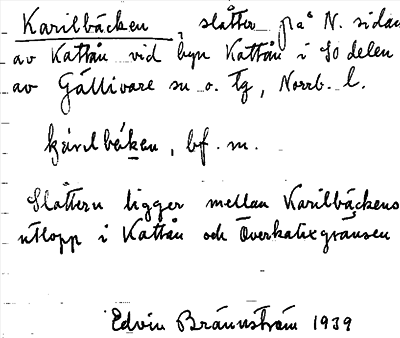 Karilbäcken, slåtter på N. sidan
av Kattån vid byn Kattån i SO delen
av Gällivare sn o. tg, Norrb. l.
bäken, bf. m.
Slåttern ligger mellan Karilbäckens
utlopp i Kattån och Överkalixgränsen
Edvin Brännström 1939